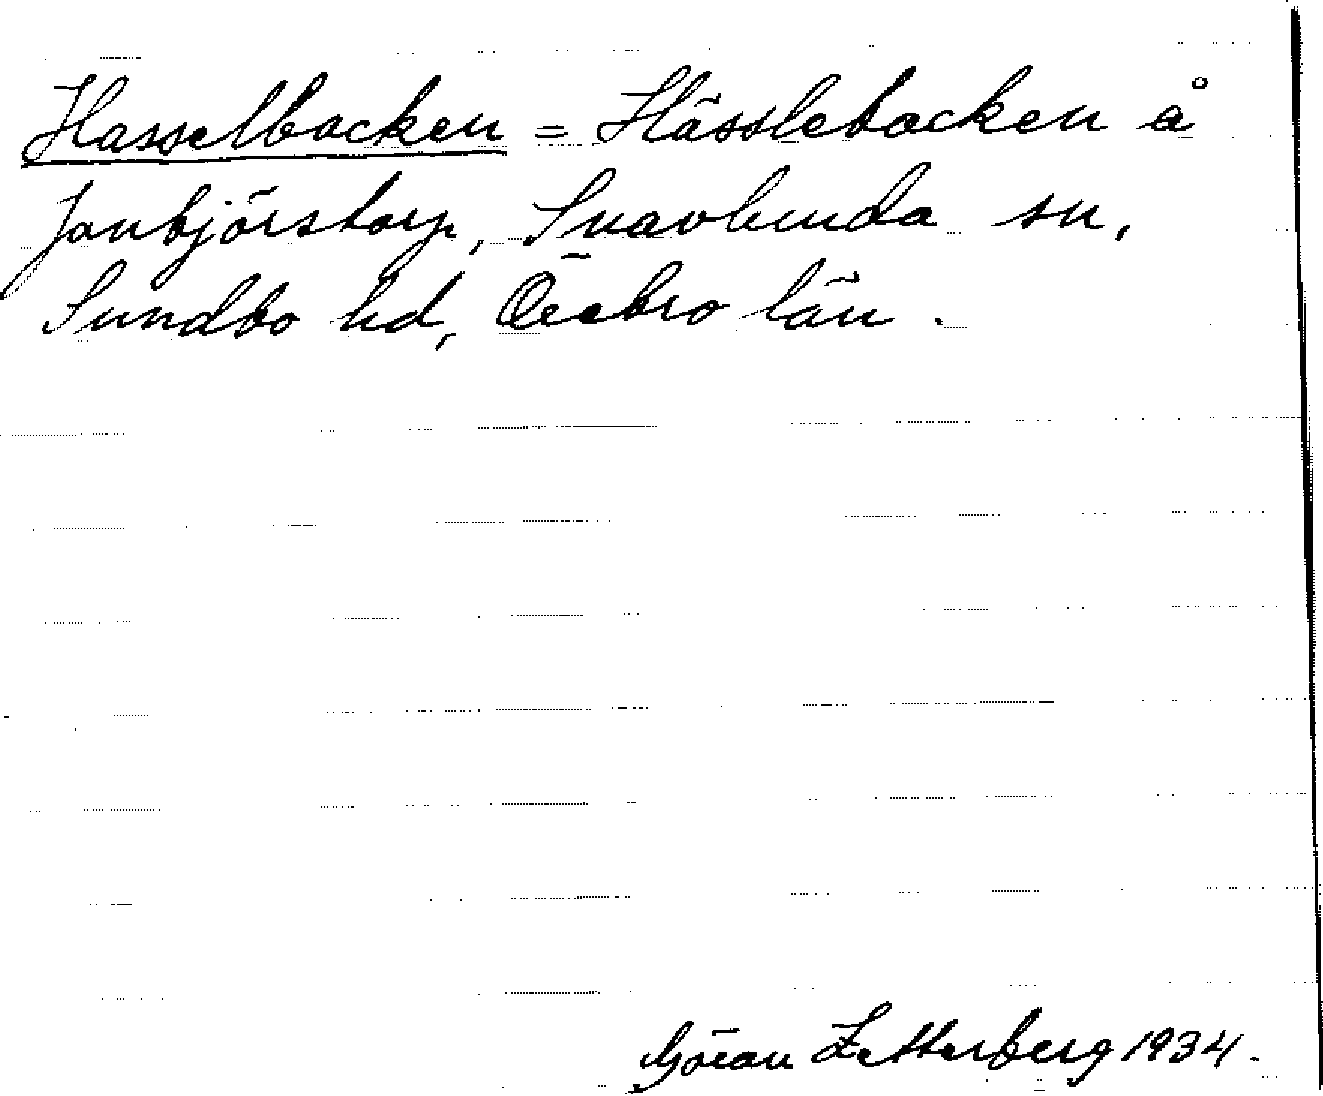 Hasselbacken = Hässlebacken å
Jonbjörstorp, Snavlunda sn,
Sundbo hd, Örebro län.
Göran Zetterberg 1934.